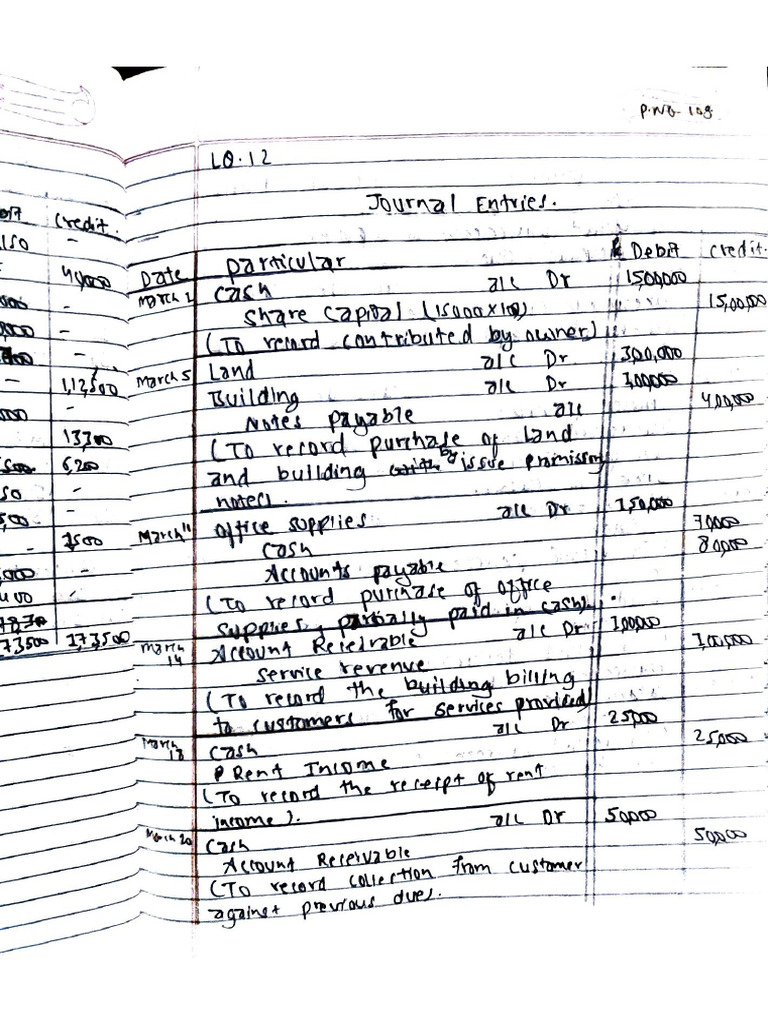 P.No. 108
LQ.12
Journal Entries.
Date Particular Debit Credit.
March 1 Cash a/c Dr 1500,000
Share Capital (15000×100) 15,00,000
(To record contributed by owner)
March 5 Land a/c Dr 300,000
Building a/c Dr 100000
Notes payable a/c 400,000
(To record purchase of Land
and building by issue promissory
notes).
March 11 Office supplies a/c Dr 150,000
Cash 70,000
Accounts payable 80,000
(To record purchase of office
supplies, partially paid in cash).
March 14 Account Receivable a/c Dr 100000
Service revenue 100,000
(To record the building billing
to customers for services provided)
March 18 Cash a/c Dr 25000
Rent Income 25,000
(To record the receipt of rent
income).
March 20 Cash a/c Dr 50,000
Account Receivable 50,000
(To record collection from customer
against previous dues.
Credit.
40,000
-
-
-
- 1,12,500
-
13,300
6,200
-
-
- 7500
-
-
73,500 1,73,500